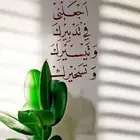 اجعلني
في تدبيرك
وتيسيرك
وتسخيرك